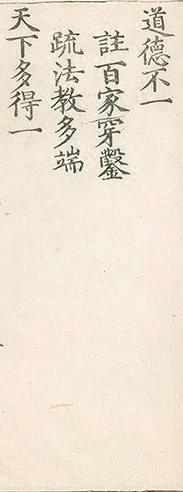 道德不一
註百家穿鑿
䟽法教多端
天下多得一